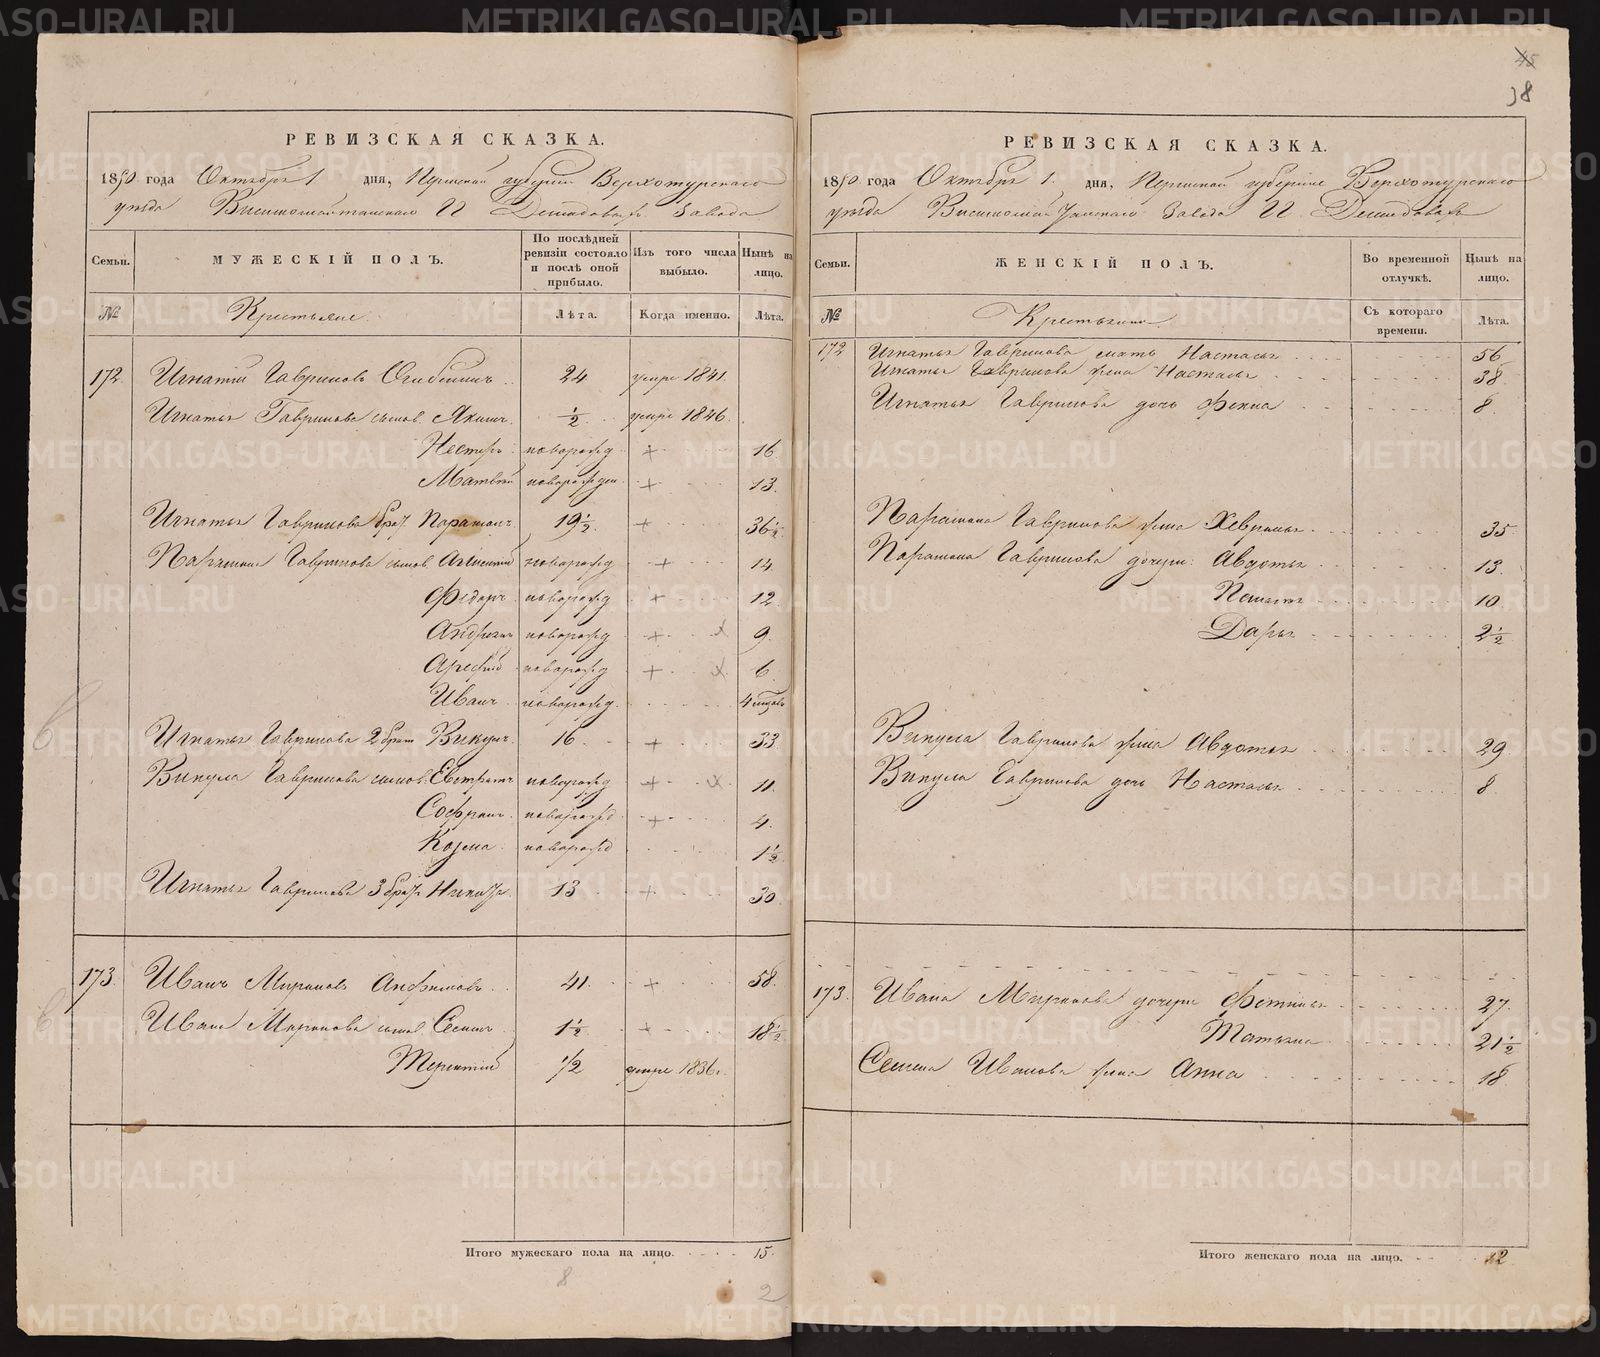 РЕВИЗСКАЯ СКАЗКА.
1850. года Октября 1 дня, Пермской губернии Верхотурскаго
уезда Висимошайтанскаго Гг Демидовыхъ Завода
Семьи.
МУЖЕСКІЙ ПОЛЪ.
По послѣдней ревизіи состояло и послѣ оной прибыло.
Изъ того числа выбыло.
Нынѣ на лицо.
№
Крестьяне
Лѣта.
Когда именно.
Лѣта.
172. Игнатій Гавриловъ 24 умре 1841.
Игнатья Гаврилова сынов. Якимъ. ½ умре 1846.
Нестеръ новорожд + 16
Матвей новорожден + 13.
Игнатья Гаврилова брат. Парамонъ 19½ + 36½
Парамона Гаврилова сынов. новорожд + 14
Федоръ новорожд + 12
новорожд + х 9.
Арефій новорожд + х 6
Иванъ новорожд. 4 месяцов
Игнатья Гаврилова 2 брат Викулъ. 16 + 33.
Викула Гаврилова сынов. Евстратъ новорожд + х 11.
Софронъ. новорожд + 4.
Козма новорожд 1½
Игнатья Гаврилова 3 брат Никита 13 + 30.
173. Иванъ Мироновъ Анфимовъ 41. + 58.
Ивана Миронова сынов. Семенъ 1½ + 18½
Терентій ½ умре 1836.
Итого мужескаго пола на лицо. 15.
8
2
45
38
РЕВИЗСКАЯ СКАЗКА.
1850 года Октября 1. дня, Пермской губернии Верхотурскаго
уезда Висимошайтанскаго Завода Гг Демидовыхъ
Семьи.
ЖЕНСКІЙ ПОЛЪ.
Во временной отлучкѣ.
Нынѣ на лицо.
№
Крестьянки
Съ котораго времени.
Лѣта.
172 Игнатья Гаврилова мать Настасья 56
Игнатья Гаврилова жена Настасья 38
Игнатья Гаврилова дочь Фекла 8
Парамона Гаврилова жена Хевронья 35
Парамона Гаврилова дочери: Авдотья 13
10
Дарья 2½
Викула Гаврилова жена Авдотья 29
Викула Гаврилова дочь Настасья 8
173. Ивана Миронова дочери Фетинья 27.
Татьяна 21½
Семена Иванова жена Анна 18
Итого женскаго пола на лицо. 12
METRIKI.GASO-URAL.RU